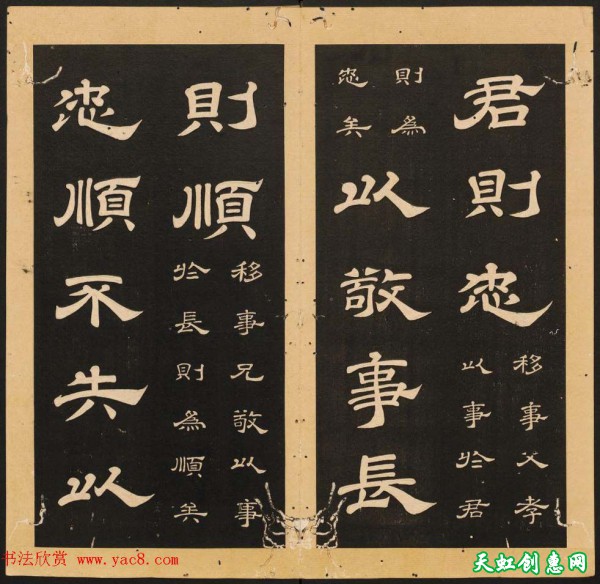 君則忠
移事父孝
以事於君
則為
忠矣
以敬事長
則順
移事兄敬以事
於長則為順矣
忠順不失以
书法欣赏 www.yac8.com
天虹创意网